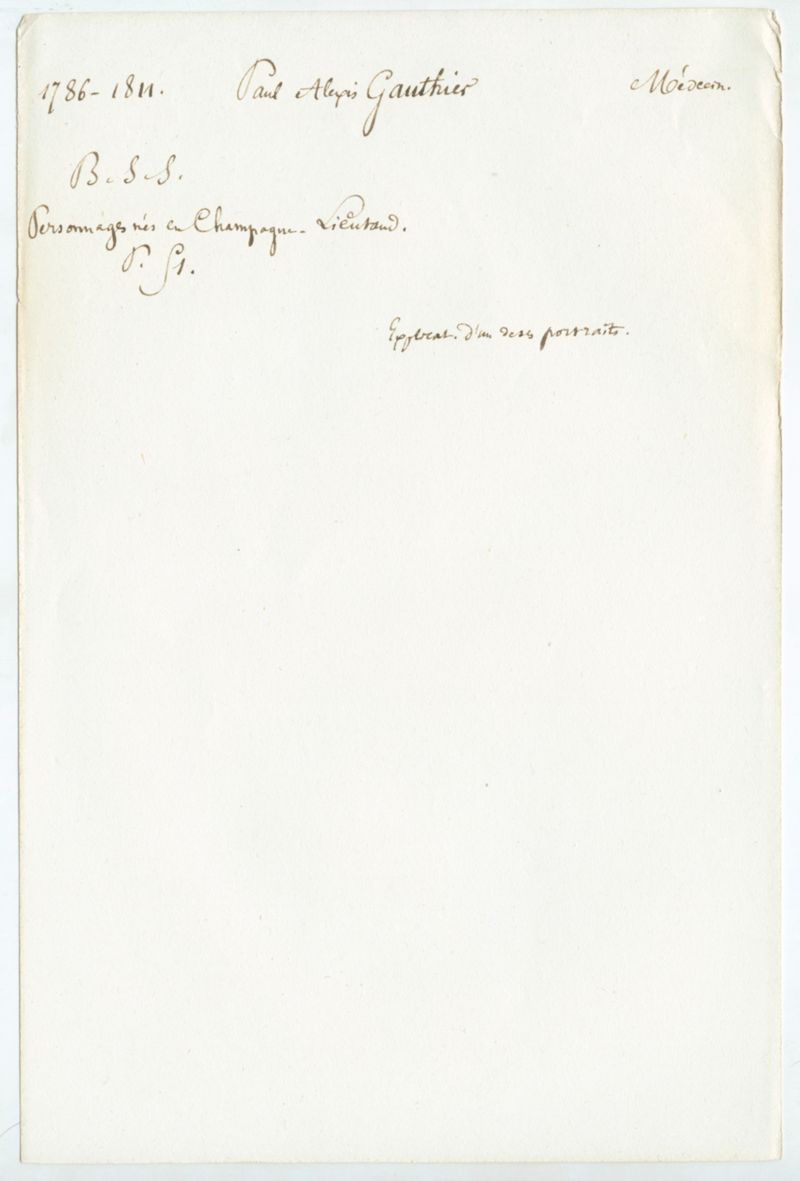 1786-1811. Paul Alexis Gauthier Médecin.
B. S. S.
Personnages nés en Champagne - Lieutaud.
P. 51.
Explicat. d'un de ses portraits.